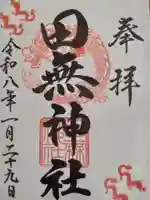 奉拝
田無神社
令和八年一月二十九日